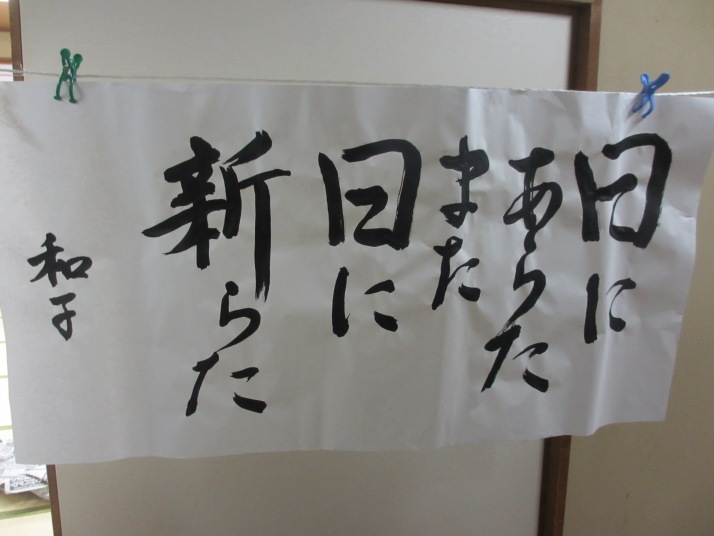 日に
あらた
また
日に
新らた
和子